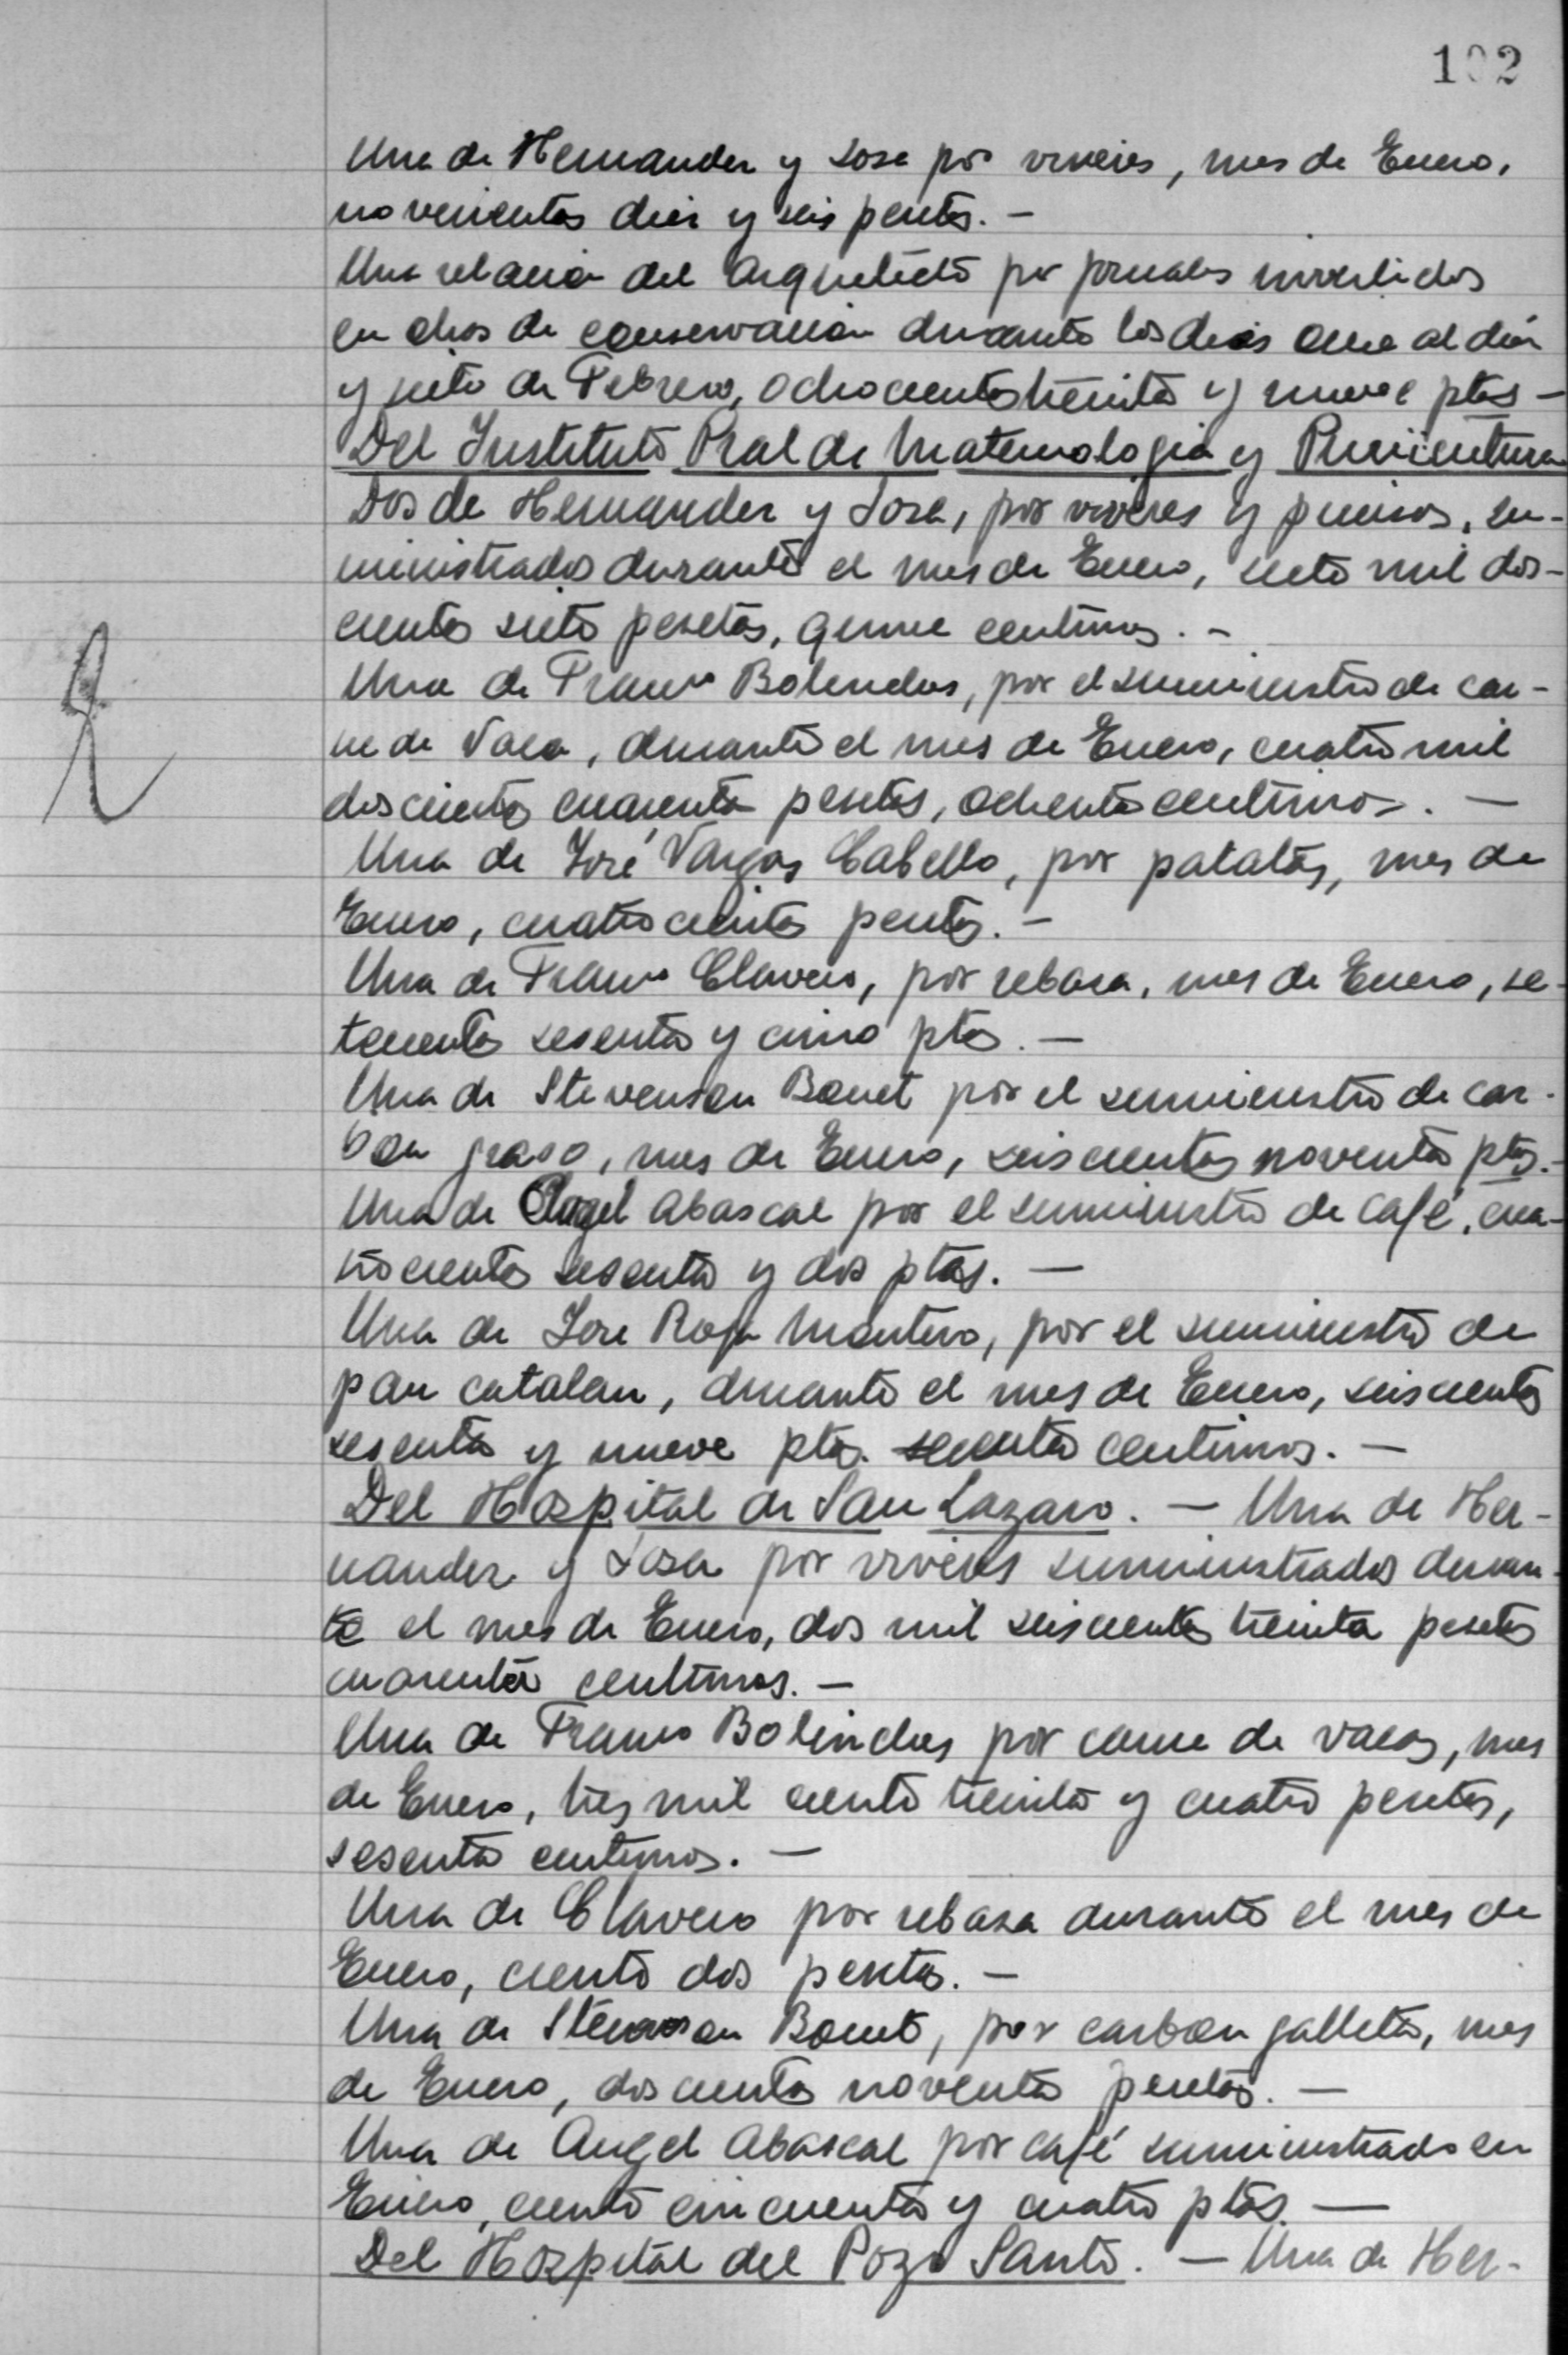 102
Una de Hernandez y Sosa por viveres, mes de Enero,
novecientas diez y seis pesetas. —
Una relacion del Arquitecto por jornales invertidos
en obras de conservacion durante los dias once al diez
y siete de Febrero, ochocientas treinta y nueve ptas —
Del Instituto Pral de Maternologia y Puericultura
Dos de Hernandez y Sosa, por viveres y piensos, su-
ministrados durante el mes de Enero, siete mil dos-
cientas siete pesetas, quince centimos. —
Una de Franco Bolinches, por el suministro de car-
ne de Vaca, durante el mes de Enero, cuatro mil
doscientas cuarenta pesetas, ochenta centimos. —
Una de José Vargas Cabello, por patatas, mes de
Enero, cuatrocientas pesetas. —
Una de Franco Clavero, por rebasa, mes de Enero, se-
tecientas sesenta y cinco ptas. —
Una de Stevenson Bonet por el suministro de car-
bon graso, mes de Enero, seiscientas noventa ptas. —
Una de Angel Abascal por el suministro de café, cua-
trocientas sesenta y dos ptas. —
Una de Jose Roja Montero, por el suministro de
pan catalan, durante el mes de Enero, seiscientas
sesenta y nueve ptas. sesenta centimos. —
Del Hospital de San Lazaro. — Una de Her-
nandez y Sosa por viveres suministrados duran-
te el mes de Enero, dos mil seiscientas treinta pesetas
cuarenta centimos. —
Una de Franco Bolinches por carne de vacas, mes
de Enero, tres mil ciento treinta y cuatro pesetas,
sesenta centimos. —
Una de Clavero por rebasa durante el mes de
Enero, ciento dos pesetas. —
Una de Stevenson Bonet, por carbon galleta, mes
de Enero, doscientas noventa pesetas. —
Una de Angel Abascal por café suministrado en
Enero, ciento cincuenta y cuatro ptas. —
Del Hospital del Pozo Santo. — Una de Her-